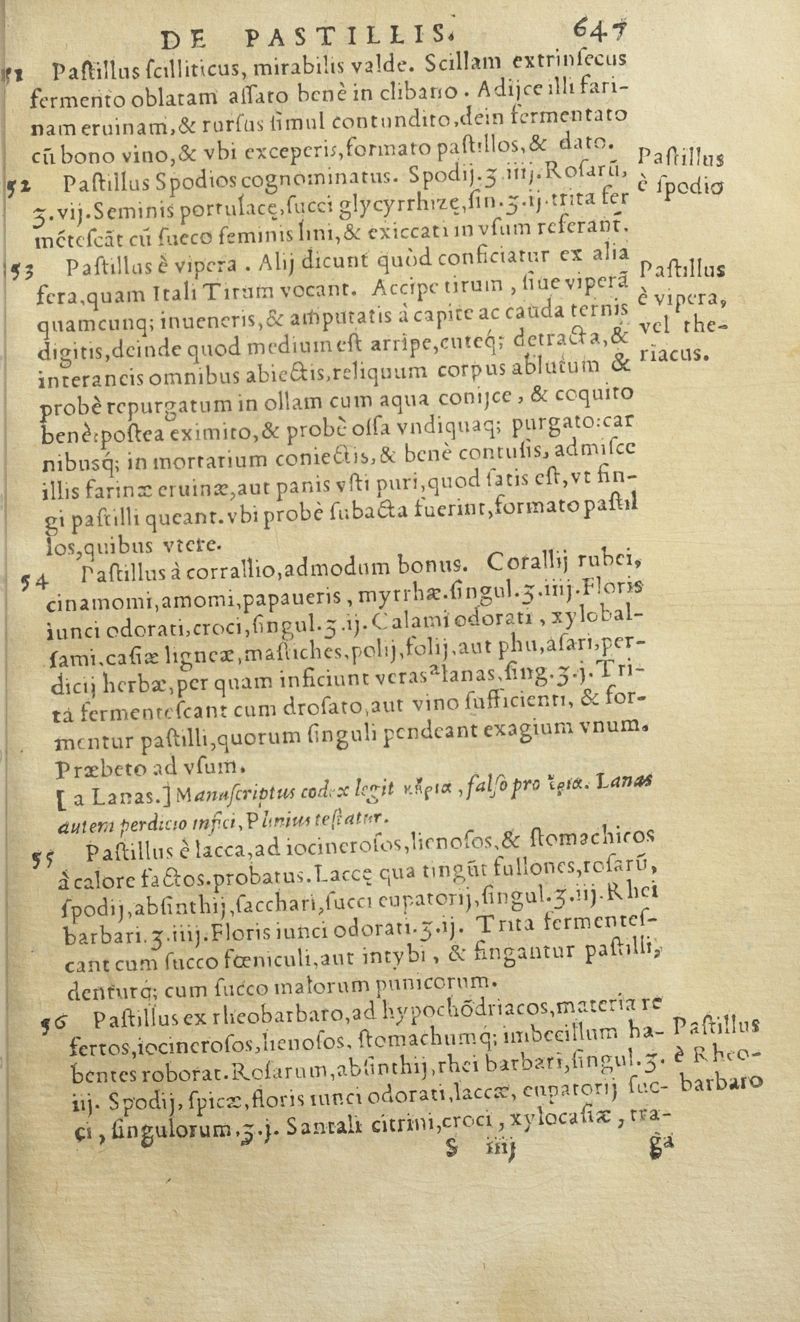 DE PASTILLIS. 647
51 Paſtillus ſcilliticus, mirabilis valde. Scillam extrinſecus
fermento oblatam aſſato benè in clibano. Adijce illi fari-
nam eruinam,& rurſus ſimul contundito,dein fermentato
cũ bono vino,& vbi exceperis,formato paſtillos,& dato.
52 Paſtillus Spodios cognominatus. Spodij.ʒ.iiij.Roſarũ,
Paſtillus
è ſpodio
ʒ.vij.Seminis portulacę,ſucci glycyrrhizę,ſin.ʒ.ij.trita fer
mẽteſcãt cũ ſucco ſeminis lini,& exiccati in vſum referant.
53 Paſtillus è vipera . Alij dicunt quòd conficiatur ex alia
fera,quam Itali Tirum vocant. Accipe tirum , ſiue vipera
Paſtillus
è vipera,
vel the-
riacus.
quamcunq; inueneris,& amputatis à capite ac cauda ternis
digitis,deinde quod medium eſt arripe,cuteq; detracta,&
interaneis omnibus abiectis,reliquum corpus ablutum &
probè repurgatum in ollam cum aqua conijce , & coquito
benè:poſtea eximito,& probè oſſa vndiquaq; purgato:car
nibusq; in mortarium coniectis,& benè contuſis, admiſce
illis farinæ eruinæ,aut panis vſti puri,quod ſatis eſt,vt fin-
gi paſtilli queant.vbi probè ſubacta fuerint,formato paſtil
los,quibus vtere.
54 Paſtillus à corrallio,admodum bonus. Corallij rubei,
cinamomi,amomi,papaueris , myrrhæ.ſingul.ʒ.iiij.Floris
iunci odorati,croci,ſingul.ʒ.ij.Calami odorati , xylobal-
ſami,caſiæ ligneæ,maſtiches,polij,folij,aut phu,aſari,per-
dicij herbæ,per quam inficiunt veras ᵃ lanas,ſing.ʒ.j.Tri-
ta fermenteſcant cum droſato,aut vino ſufficienti, & for-
mentur paſtilli,quorum ſinguli pendeant exagium vnum.
Præbeto ad vſum.
[ a Lanas.] Manuſcriptus codex legit , falſo pro . Lanas
autem perdicio infici, Plinius teſtatur.
55 Paſtillus è lacca,ad iocineroſos,lienoſos,& ſtomachicos
à calore factos.probatus.Laccę qua tingũt fullones,roſarũ,
ſpodij,abſinthij,ſacchari,ſucci eupatorij,ſingul.ʒ.iij.Rhei
barbari.ʒ.iiij.Floris iunci odorati.ʒ.ij. Trita fermenteſ-
cant cum ſucco fœniculi,aut intybi , & fingantur paſtilli,
denturq; cum ſucco malorum punicorum.
56 Paſtillus ex rheobarbaro,ad hypochõdriacos,materia re
fertos,iocineroſos,lienoſos, ſtomachumq; imbecillum ha-
Paſtillus
è Rheo-
barbaro
bentes roborat.Roſarum,abſinthij,rhei barbari,ſingul.ʒ.
iij. Spodij, ſpicæ,floris iunci odorati,laccæ, eupatorij ſuc-
ci , ſingulorum.ʒ.j. Santali citrini,croci , xylocaſiæ , tra-
S iiij ga